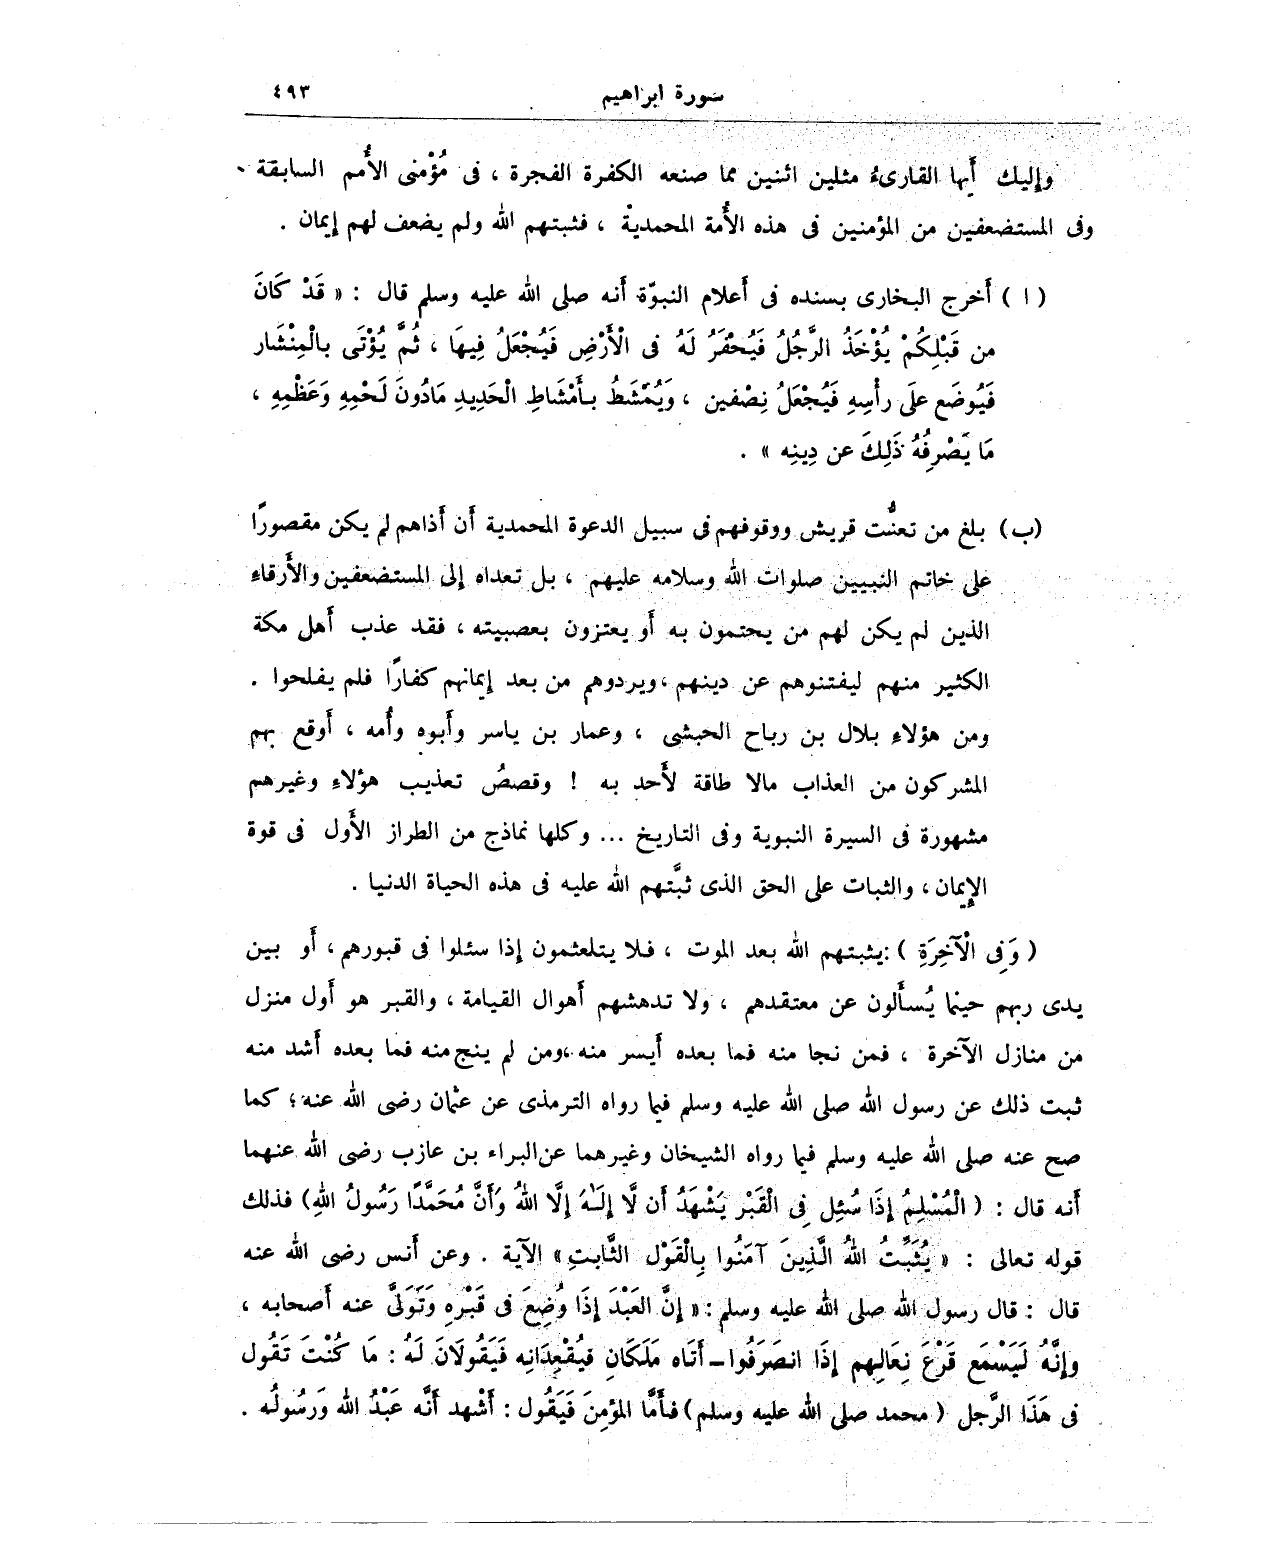 سورة ابراهيم ٤٩٣
وإليك أَيها القارىءُ مثلين اثنين مما صنعه الكفرة الفجرة ، فى مُؤْمنى الأُمم السابقة -
وفى المستضعفين من المؤمنين فى هذه الأُمة المحمديةْ ، فثبتهم الله ولم يضعف لهم إيمان .
( ا ) أَخرج البخارى بسنده فى أَعلام النبوّة أَنه صلى الله عليه وسلم قال : « قَدْ كَانَ
من قَبْلِكُمْ يُؤْخَذُ الرَّجُلُ فَيُحْفَرُ لَهُ فى الْأَرْضِ فَيُجْعَلُ فِيهَا ، ثُمَّ يُؤْتَى بالْمِنْشَار
فَيُوضَع علَى رأْسِهِ فَيُجْعَلُ نِصْفين ، وَيُمْشَطُ بأَمْشَاطِ الْحَدِيدِ مَادُونَ لَحْمِهِ وَعَظْمِهِ ،
مَا يَصْرِفُهُ ذَلِكَ عن دِينِه » .
(ب) بلغ من تعنُّت قريش ووقوفهم فى سبيل الدعوة المحمدية أَن أَذاهم لم يكن مقصورًا
على خاتم النبيين صلوات الله وسلامه عليهم ، بل تعداه إلى المستضعفين والأَرقاء
الذين لم يكن لهم من يحتمون به أَو يعتزون بعصبيته ، فقد عذب أَهل مكة
الكثير منهم ليفتنوهم عن دينهم ،ويردوهم من بعد إيمانهم كفارًا فلم يفلحوا .
ومن هؤلاءِ بلال بن رباح الحبشى ، وعمار بن ياسر وأَبوه وأُمه ، أَوقع بهم
المشركون من العذاب مالا طاقة لأَحد به ! وقصصُ تعذيب هؤلاءِ وغيرهم
مشهورة فى السيرة النبوية وفى التاريخ ... وكلها نماذج من الطراز الأَول فى قوة
الإِيمان ، والثبات على الحق الذى ثبَّتهم الله عليه فى هذه الحياة الدنيا .
( وَفِى الْآخِرَةِ ) :يثبتهم الله بعد الموت ، فلا يتلعثمون إذا سئلوا فى قبورهم ، أَو بين
يدى ربهم حينما يُسأَلون عن معتقدهم ، ولا تدهشهم أَهوال القيامة ، والقبر هو أَول منزل
من منازل الآخرة ، فمن نجا منه فما بعده أَيسر منه ،ومن لم ينج منه فما بعده أَشد منه
ثبت ذلك عن رسول الله صلى الله عليه وسلم فيما رواه الترمذى عن عثمان رضى الله عنه ؛ كما
صح عنه صلى الله عليه وسلم فيما رواه الشيخان وغيرهما عن البراء بن عازب رضى الله عنهما
أَنه قال : ( الْمُسْلِمُ إِذَا سُئِل فِى الْقَبْر يَشْهَدُ أَن لَّا إِلَـٰهَ إِلَّا اللهُ وَأَنَّ مُحَمَّدًا رَسُولُ اللهِ) فذلك
قوله تعالى : « يُثَبِّتُ اللهُ الَّذِينَ آمَنُوا بِالْقَوْلِ الثَّابتِ » الآية . وعن أَنس رضى الله عنه
قال : قال رسول الله صلى الله عليه وسلم : « إِنَّ العَبْدَ إِذَا وُضِعَ فى قَبْرِهِ وَتَوَلَّى عنه أَصحابه ،
وإِنَّهُ لَيَسْمَع قَرْعَ نِعَالِهِم إِذَا انصَرَفُوا – أَتَاه مَلَكَانِ فيُقْعِدَانِه فَيَقُولَانَ لَهُ : مَا كُنْتَ تَقُول
فى هَذَا الرَّجل ( محمد صلى الله عليه وسلم ) فأَمَّا المؤمِنَ فَيَقُول : أَشْهد أَنَّه عَبْدُ الله وَرسُولُه .